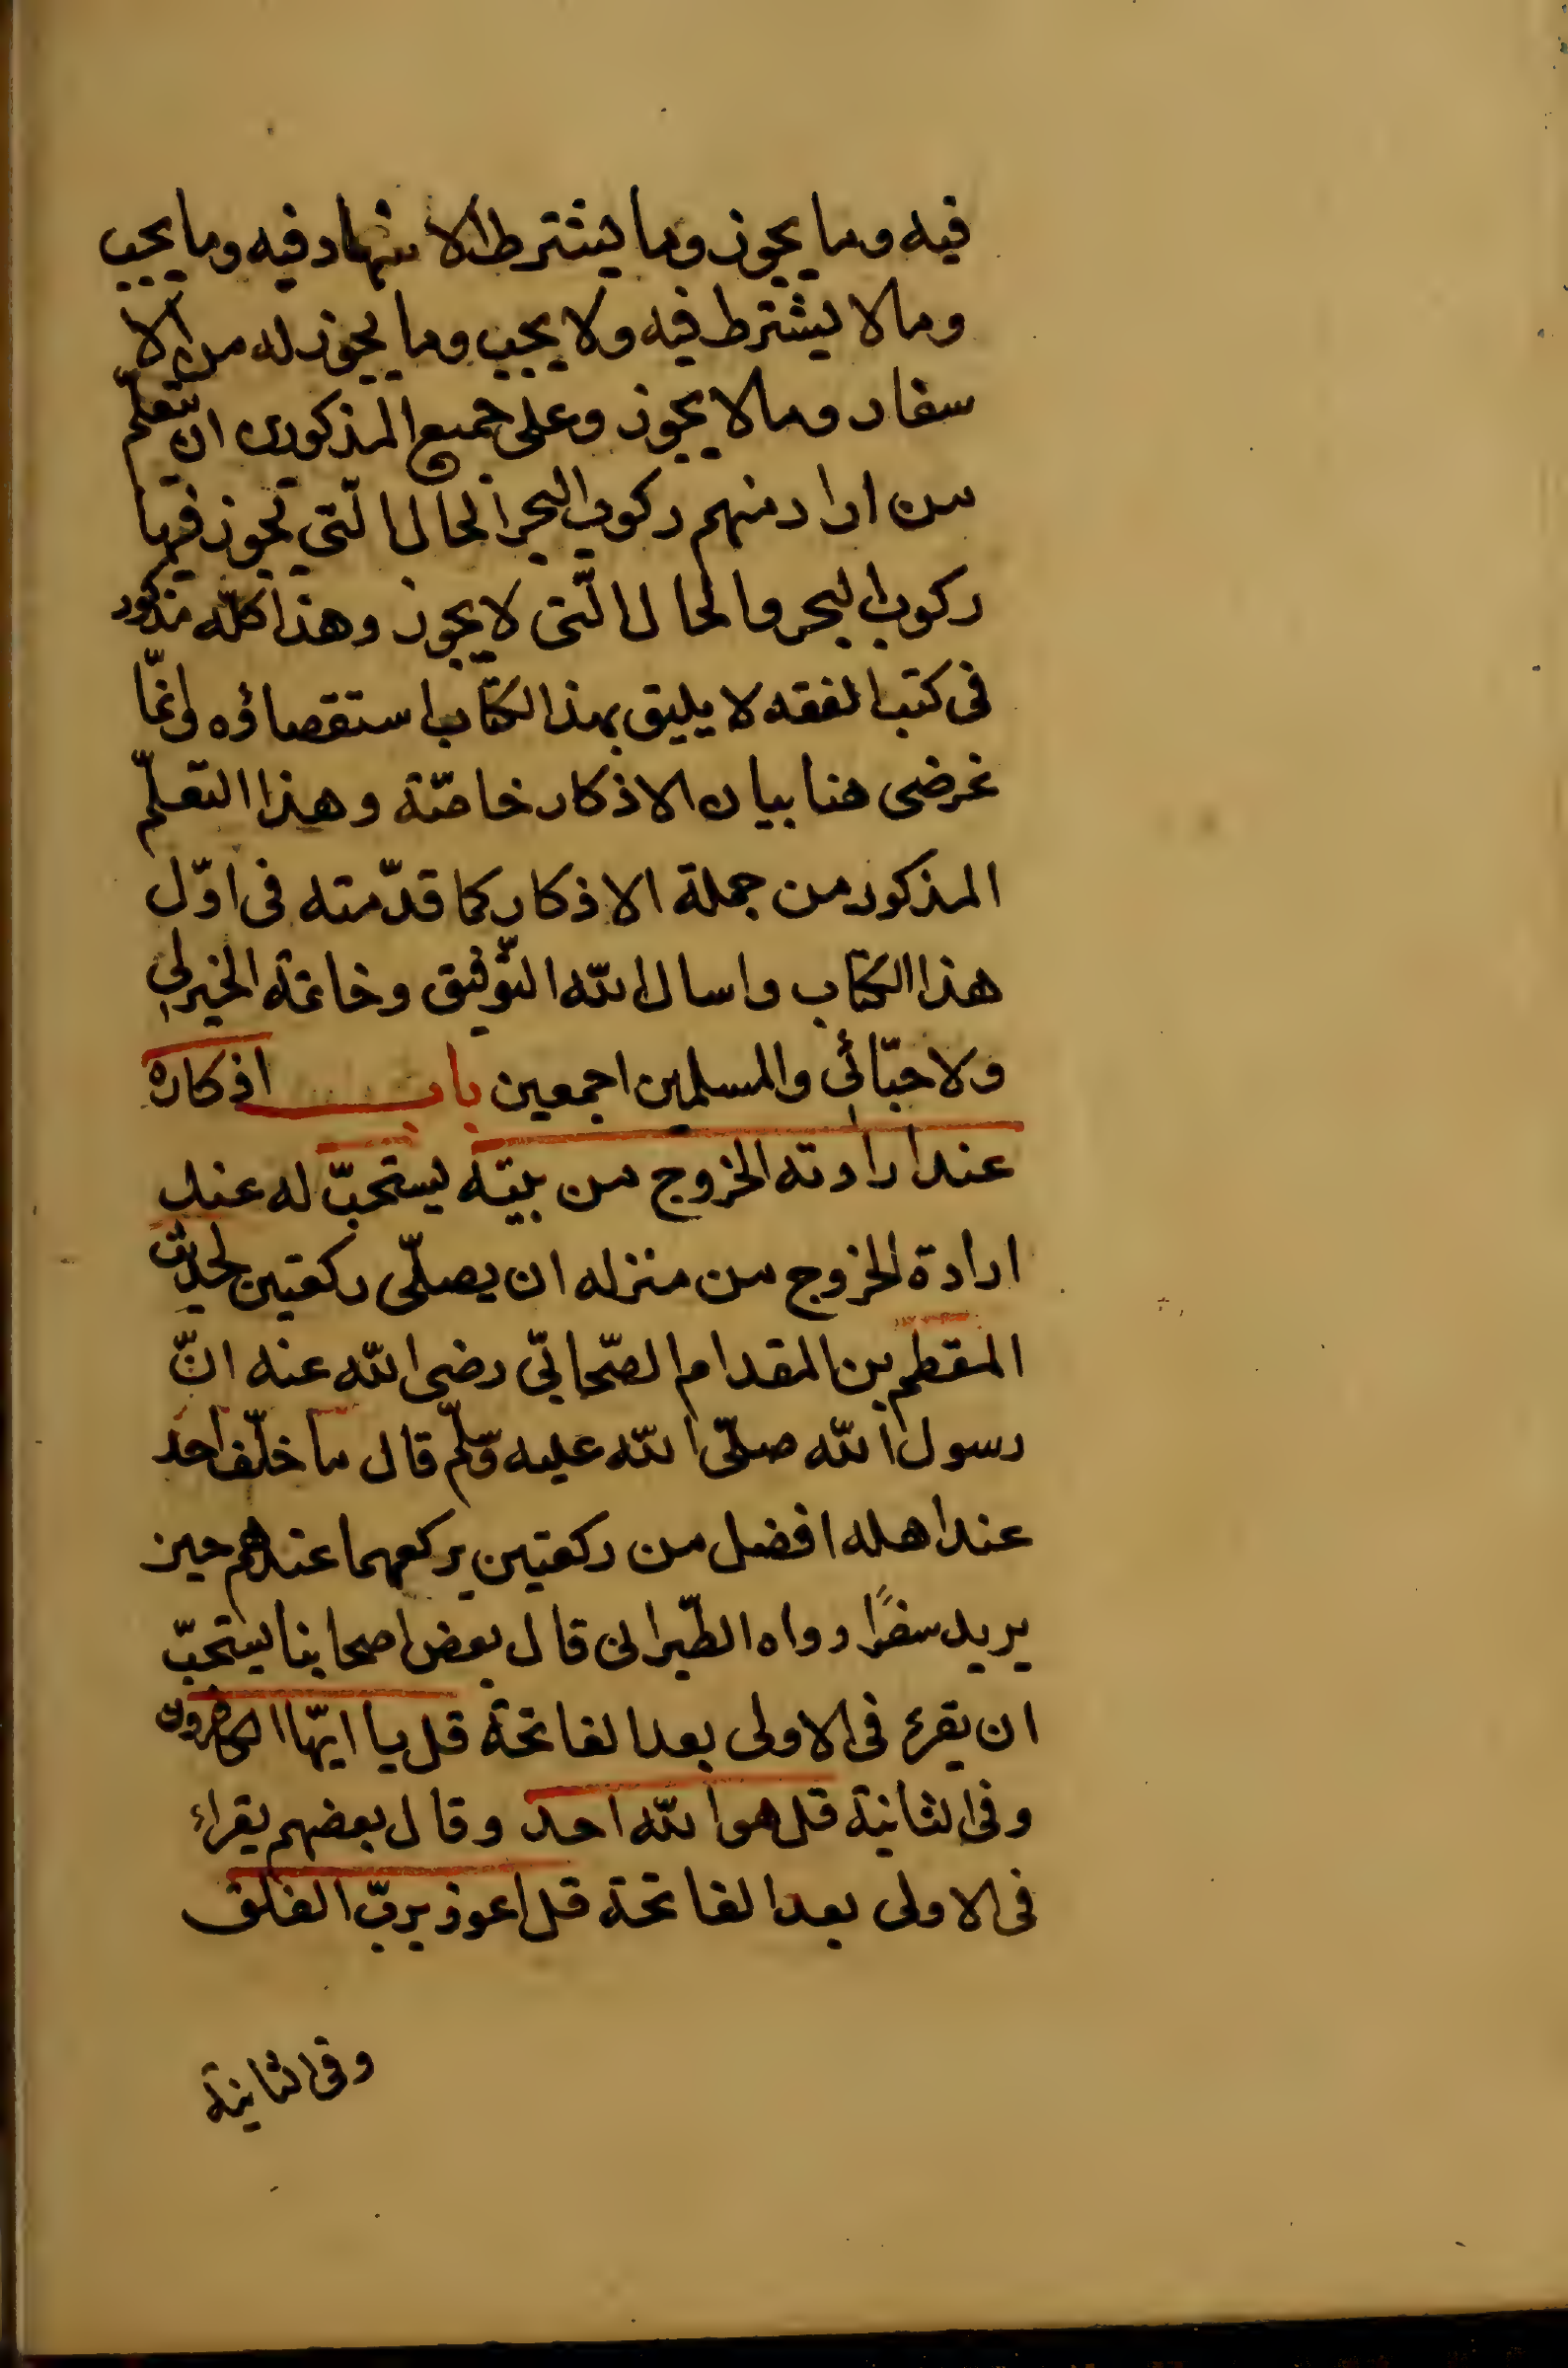 فيه وما يجوز وما يشترط الاشهاد فيه وما يجب
وما لا يشترط فيه ولا يجب وما يجوز له من الا
سفار وما لا يجوز وعلى جميع المذكورين ان يتعلّم
من اراد منهم ركوب البحر الحال الّتي تجوز فيها
ركوب البحر والحال الّتى لا يجوز وهذا كلّه مذكور
فى كتب الفقه لا يليق بهذا الكتاب استقصاؤه وانّما
غرضى هنا بيان الاذكار خاصّة وهذا التعلّم
المذكور من جملة الاذكار كما قدّمته فى اوّل
هذا الكتاب واسال الله التّوفيق وخاتمة الخير لي
ولاحبّائي والمسلمين اجمعين باب اذكاره
عند ارادته الخروج من بيته يستحبّ له عند
ارادة الخروج من منزله ان يصلّى ركعتين لحديث
المقطم بن المقدام الصّحابيّ رضى الله عنه انّ
رسول الله صلّى الله عليه وسلّم قال ما خلّف احد
عند اهله افضل من ركعتين يركعهما عندهم حين
يريد سفرًا رواه الطّبرانى قال بعض اصحابنا يستحبّ
ان يقرئ فى الاولى بعد الفاتحة قل يا ايّها الكافرون
وفى الثانية قل هو الله احد وقال بعضهم يقراء
فى الاولى بعد الفاتحة قل اعوذ بربّ الفلق
وفى الثانية